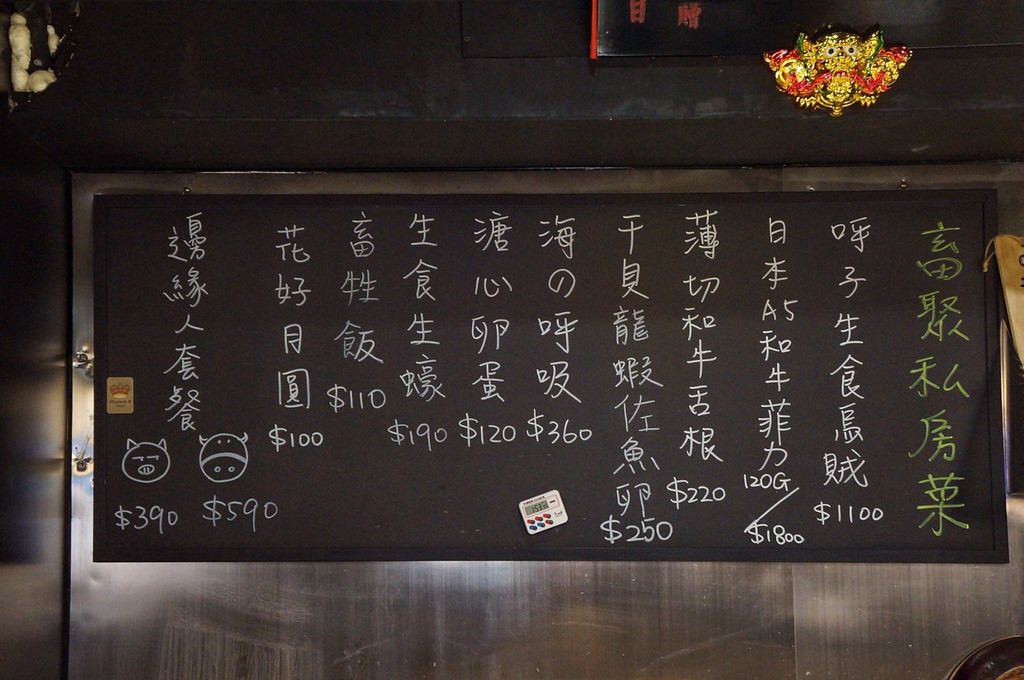 畜聚私房菜
呼子生食烏賊
$1100
日本A5和牛菲力
120G/$1800
薄切和牛舌根
$220
干貝龍蝦佐魚卵
$250
海の呼吸
$360
溏心卵蛋
$120
生食生蠔
$190
畜牲飯
$110
花好月圓
$100
邊緣人套餐
$390
$590